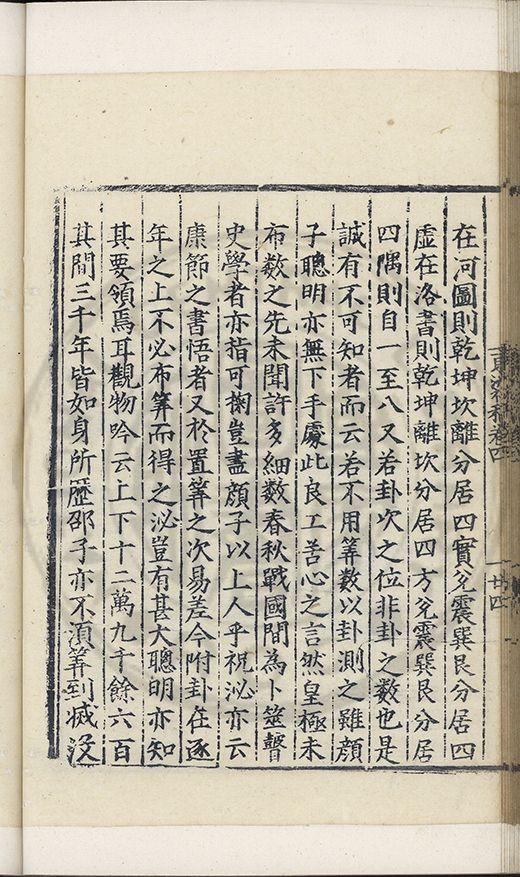 在河圖則乾坤坎離分居四實兌震巽艮分居四
虛在洛書則乾坤離坎分居四方兌震巽艮分居
四隅則自一至八又若卦次之位非卦之數也是
誠有不可知者而云若不用筭數以卦測之雖顔
子聰明亦無下手處此良工苦心之言然皇極未
布數之先未聞許多細數春秋戰國間為卜筮瞽
史學者亦指可掬豈盡顔子以上人乎祝泌亦云
康節之書悟者又於置筭之次易差今附卦在逐
年之上不必布筭而得之泌豈有甚大聰明亦知
其要領焉耳觀物吟云上下十二萬九千餘六百
其間三千年皆如身所歷邵子亦不須筭到滅沒
卷四
廿四